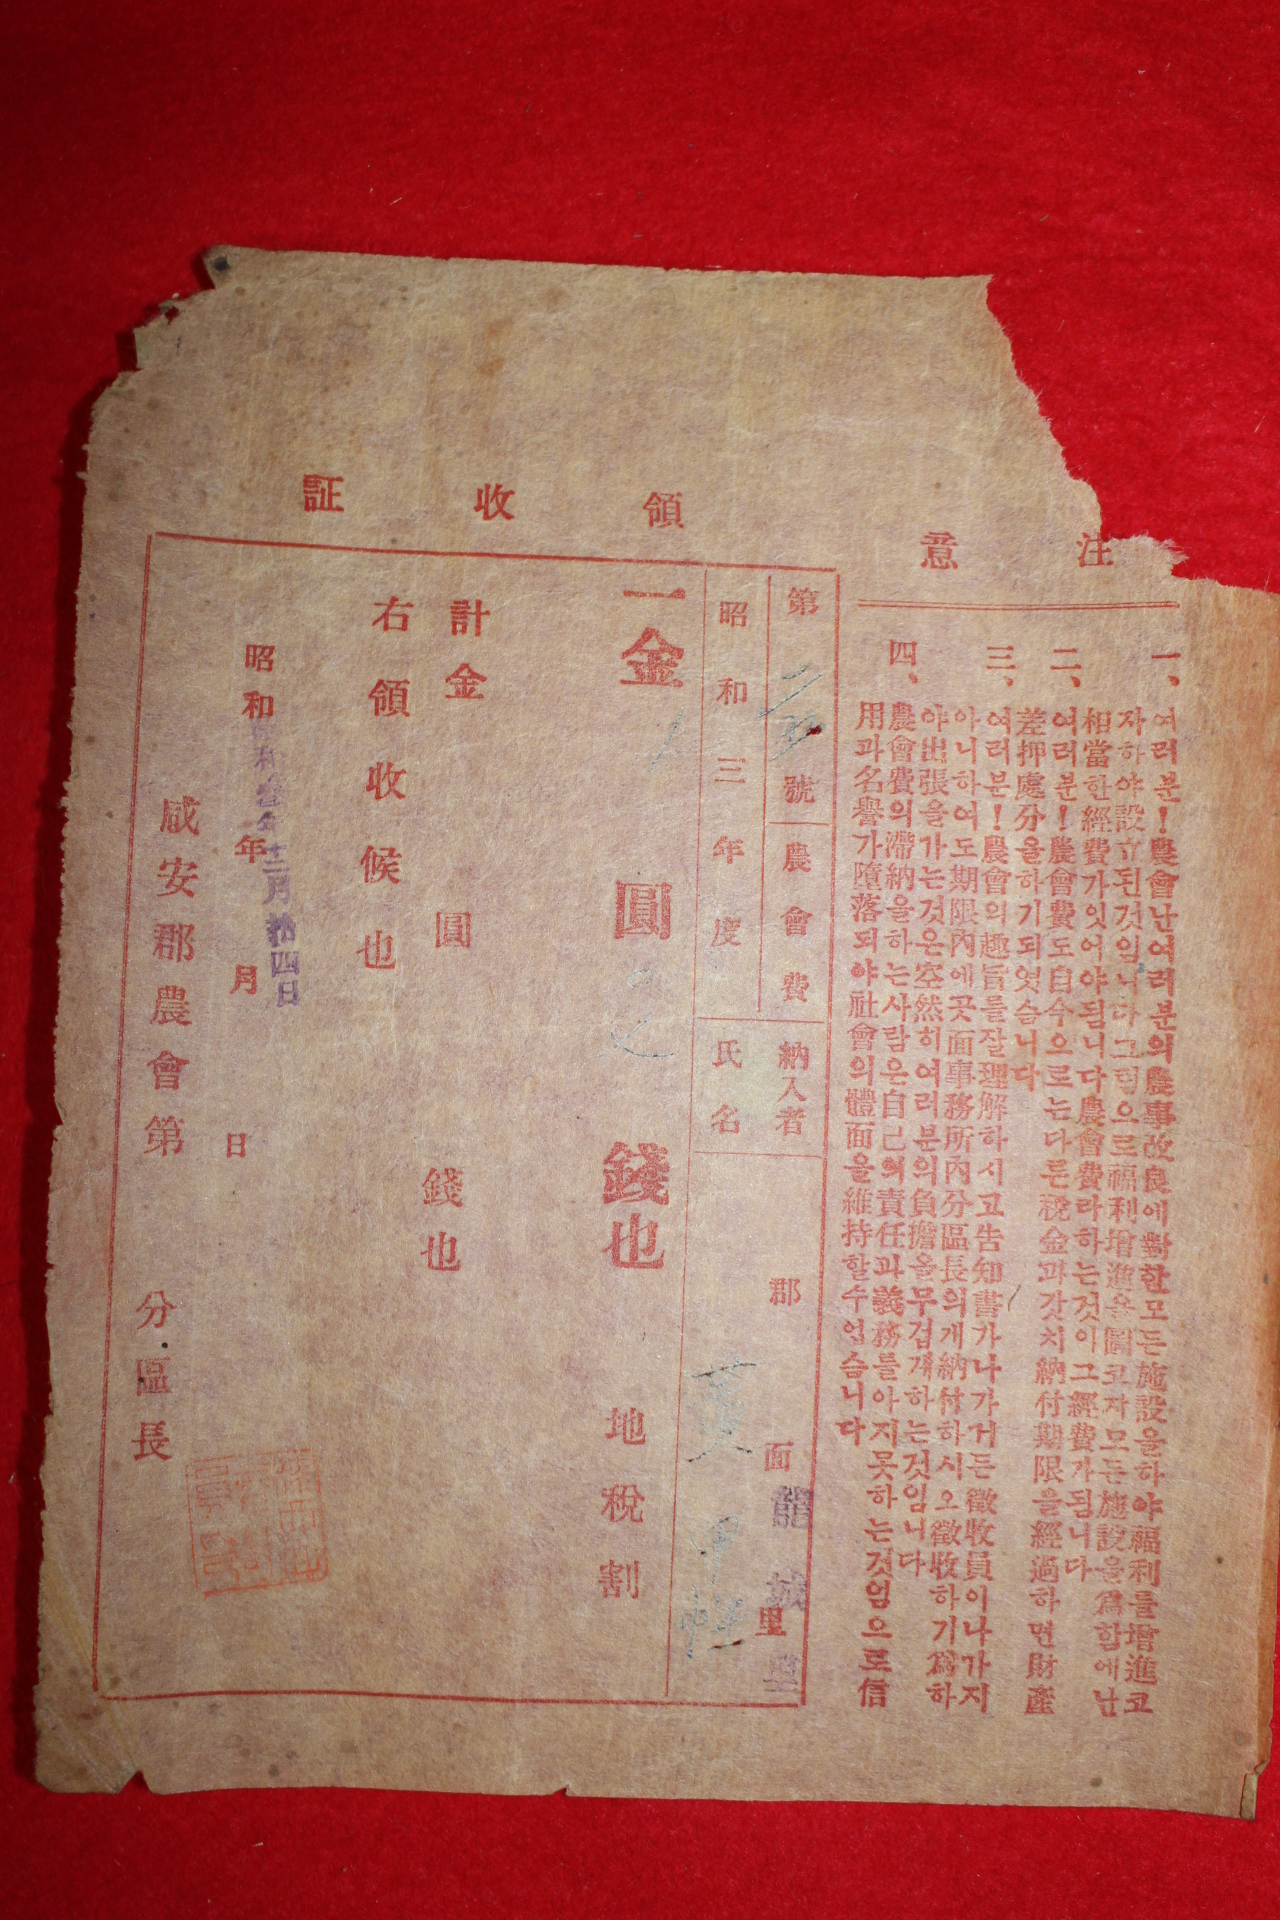 注意
一、여러분！農會난여러분의農事改良에對한모든施設을하야福利를增進코
자하야設立된것임니다그럼으로福利增進을圖코자모든施設을爲함에난
相當한經費가잇어야됨니다農會費라하는것이그經費가됨니다
二、여러분！農會費도自今으로는다른稅金과갓치納付期限을經過하면財產
差押處分을하기되엿슴니다
三、여러분！農會의趣旨를잘理解하시고告知書가나가거든徵收員이나가지
아니하여도期限內에곳面事務所內分區長의게納付하시오徵收하기爲하
야出張을가는것은空然히여러분의負擔을무겁개하는것임니다
四、農會費의滯納을하는사람은自己의責任과義務를아지못하는것임으로信
用과名譽가墮落되야社會의體面을維持할수업슴니다
領收証
第 號 農會費 納入者 郡 面 龍城 里
昭和三年度 氏名
一金 圓 錢也 地稅割
計金 圓 錢也
右領收候也
昭和 年 月 日
昭和參年十二月拾四日
咸安郡農會第 分區長